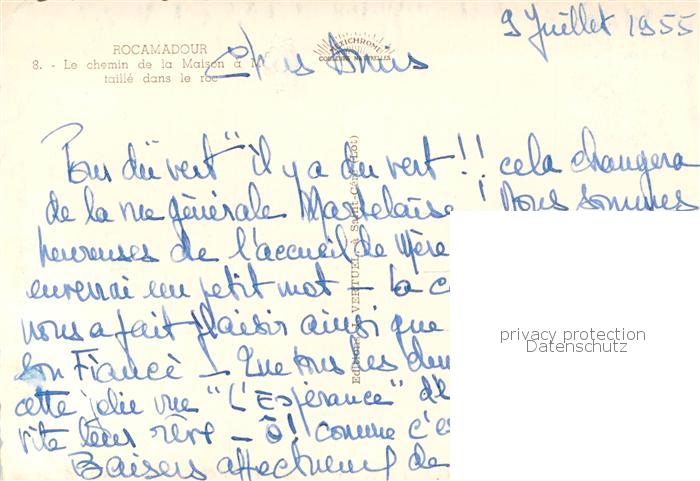 9 Juillet 1955
ROCAMADOUR
8. - Le chemin de la Maison à M
taillé dans le roc
ARTICHROME
COULEURS NATURELLES
Chers Amis
Pour du "vert" il y a du vert !! cela changera
de la vue générale Marselaise ! Nous sommes
heureuses de l'accueil de Mère
enverrai un petit mot - La c
nous a fait plaisir ainsi que
son Fiancé - Que tous ces
cette jolie vue "L'Espérance" d'
vite leur rêve - Ô !! comme c'es
Baisers affectueux de
Editions J. VERTUEL, à Saint-Céré (Lot)
privacy protection
Datenschutz